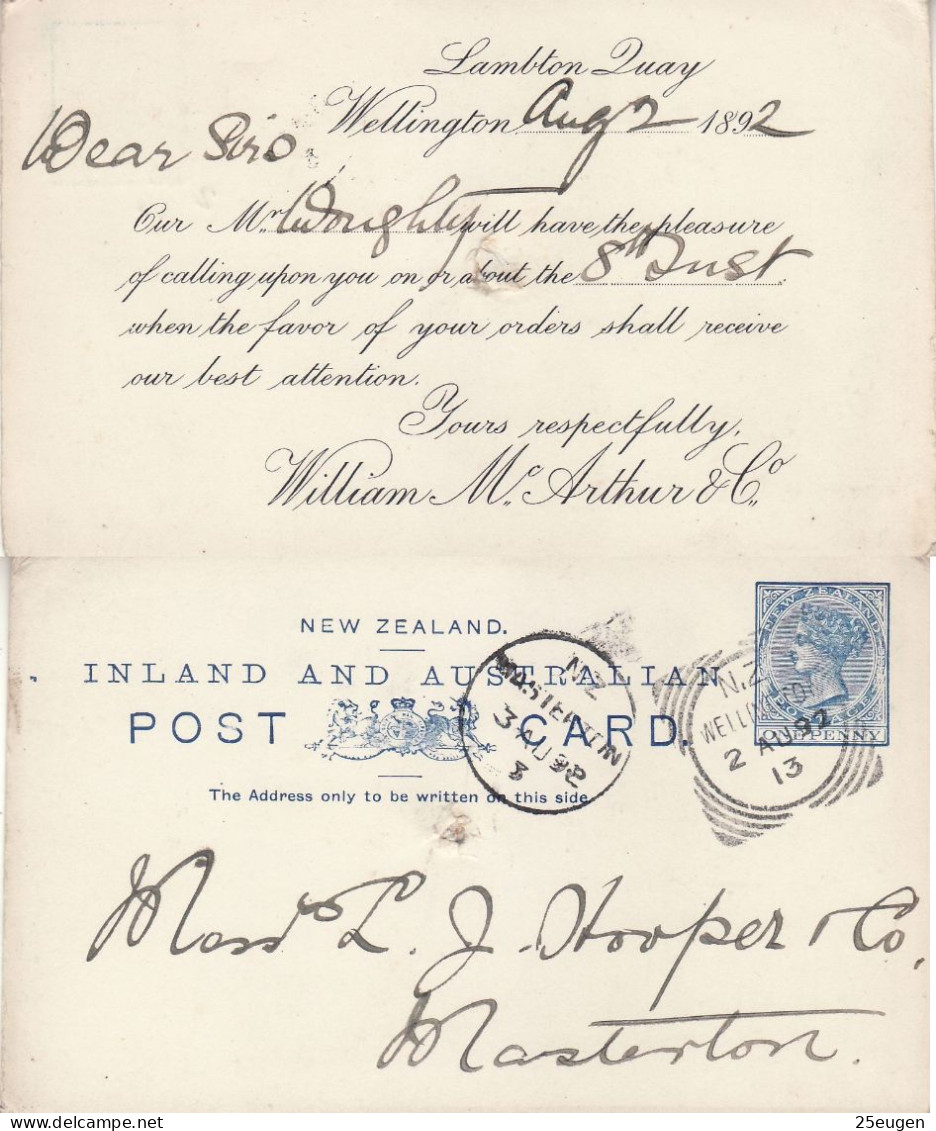 Lambton Quay
Wellington Aug 2 1892
Dear Sirs
Our Mr. Doughty will have the pleasure
of calling upon you on or about the 8th Inst.
when the favor of your orders shall receive
our best attention.
Yours respectfully,
William Mc. Arthur & Co.,
NEW ZEALAND.
INLAND AND AUSTRALIAN
POST CARD.
The Address only to be written on this side
NEW ZEALAND
POSTAGE
ONE PENNY
N.Z
MASTERTON
3 AU 92
3
N.Z
WELLINGTON
2 AU 92
13
Messrs L. J. Hooper & Co,
Masterton.
25eugen
delcampe.net